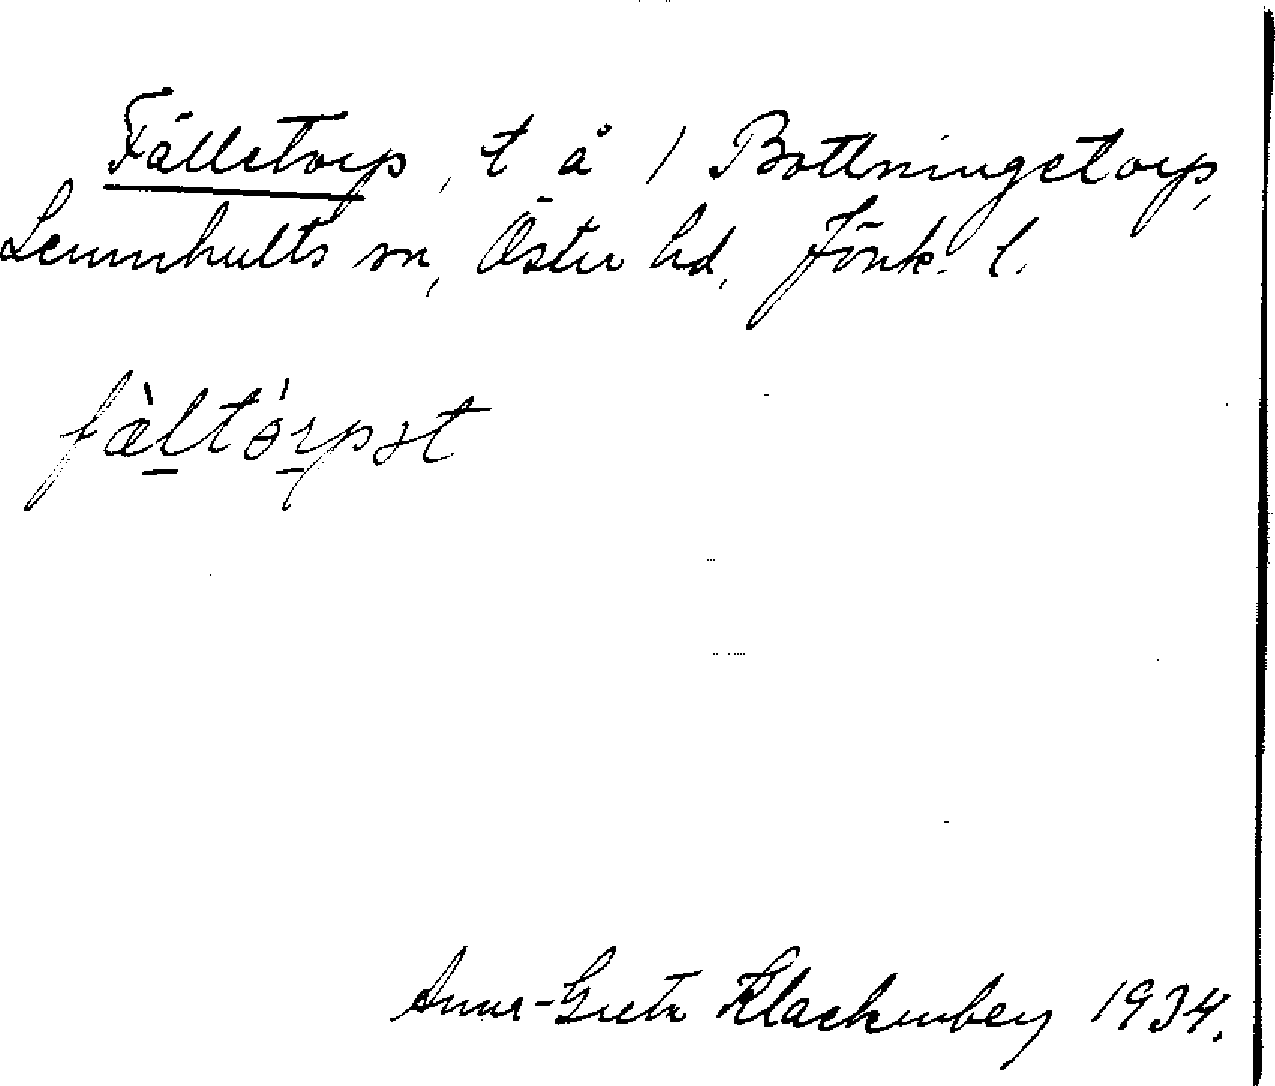 Fälletorp, t å 1 Bottningetorp,
Lemnhults sn, Östra hd, Jönk. l.
fàltórpət
Anna-Greta Klackenberg 1934.